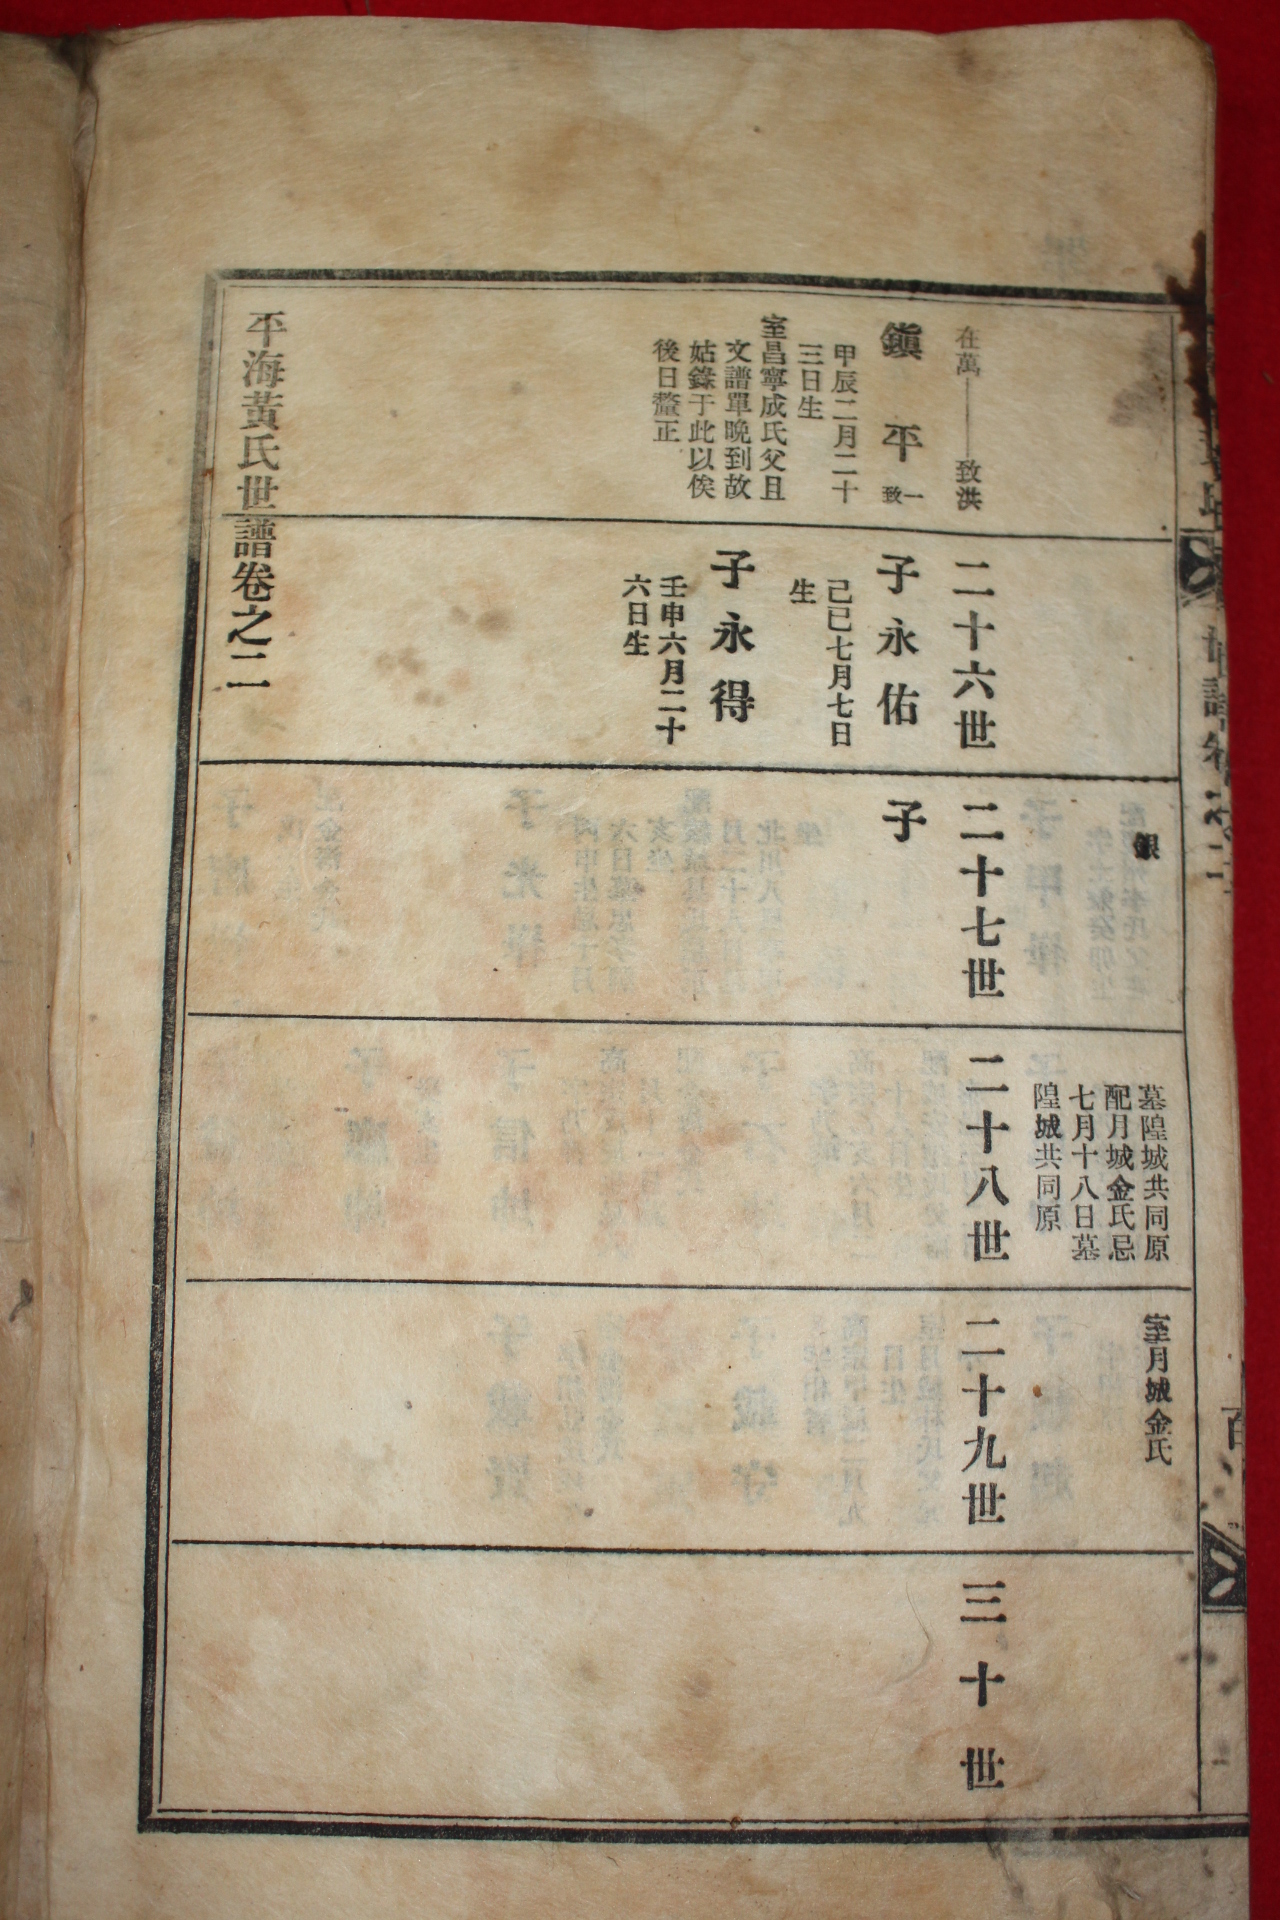 銀
墓隍城共同原
配月城金氏忌
七月十八日墓
隍城共同原
室月城金氏
在萬———致洪
鎭平 一致
甲辰二月二十
三日生
室昌寧成氏父且
文譜單晩到故
姑錄于此以俟
後日釐正
二十六世
子永佑
己巳七月七日
生
子永得
壬申六月二十
六日生
二十七世
子
二十八世
二十九世
三十世
平海黃氏世譜卷之二